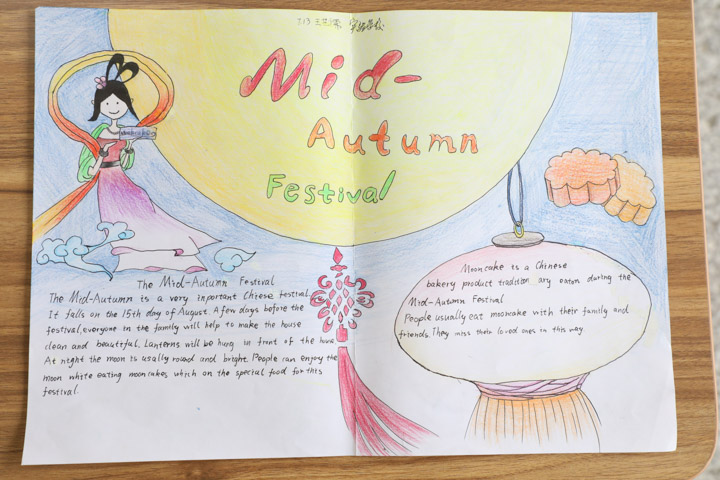 713
实验学校
Mid-
Autumn
Festival
The Mid-Autumn Festival
The Mid-Autumn is a very inportant Chirese Festival
It falls on the 15th day of August A few days before the
festival, everyone in the family will help to make the house
clean and beautiful. Lanterns will be hung in front of the house
At night the moon is usally roued and bright. People can enjoy the
moon white eating mooncakes which on the special food for this
festival.
Mooncake is a Chinese
bakery product tradition ary eaten during the
Mid-Autumn Festival
People usually eat mooncake with their family and
friends. They miss their loved ones in this way.